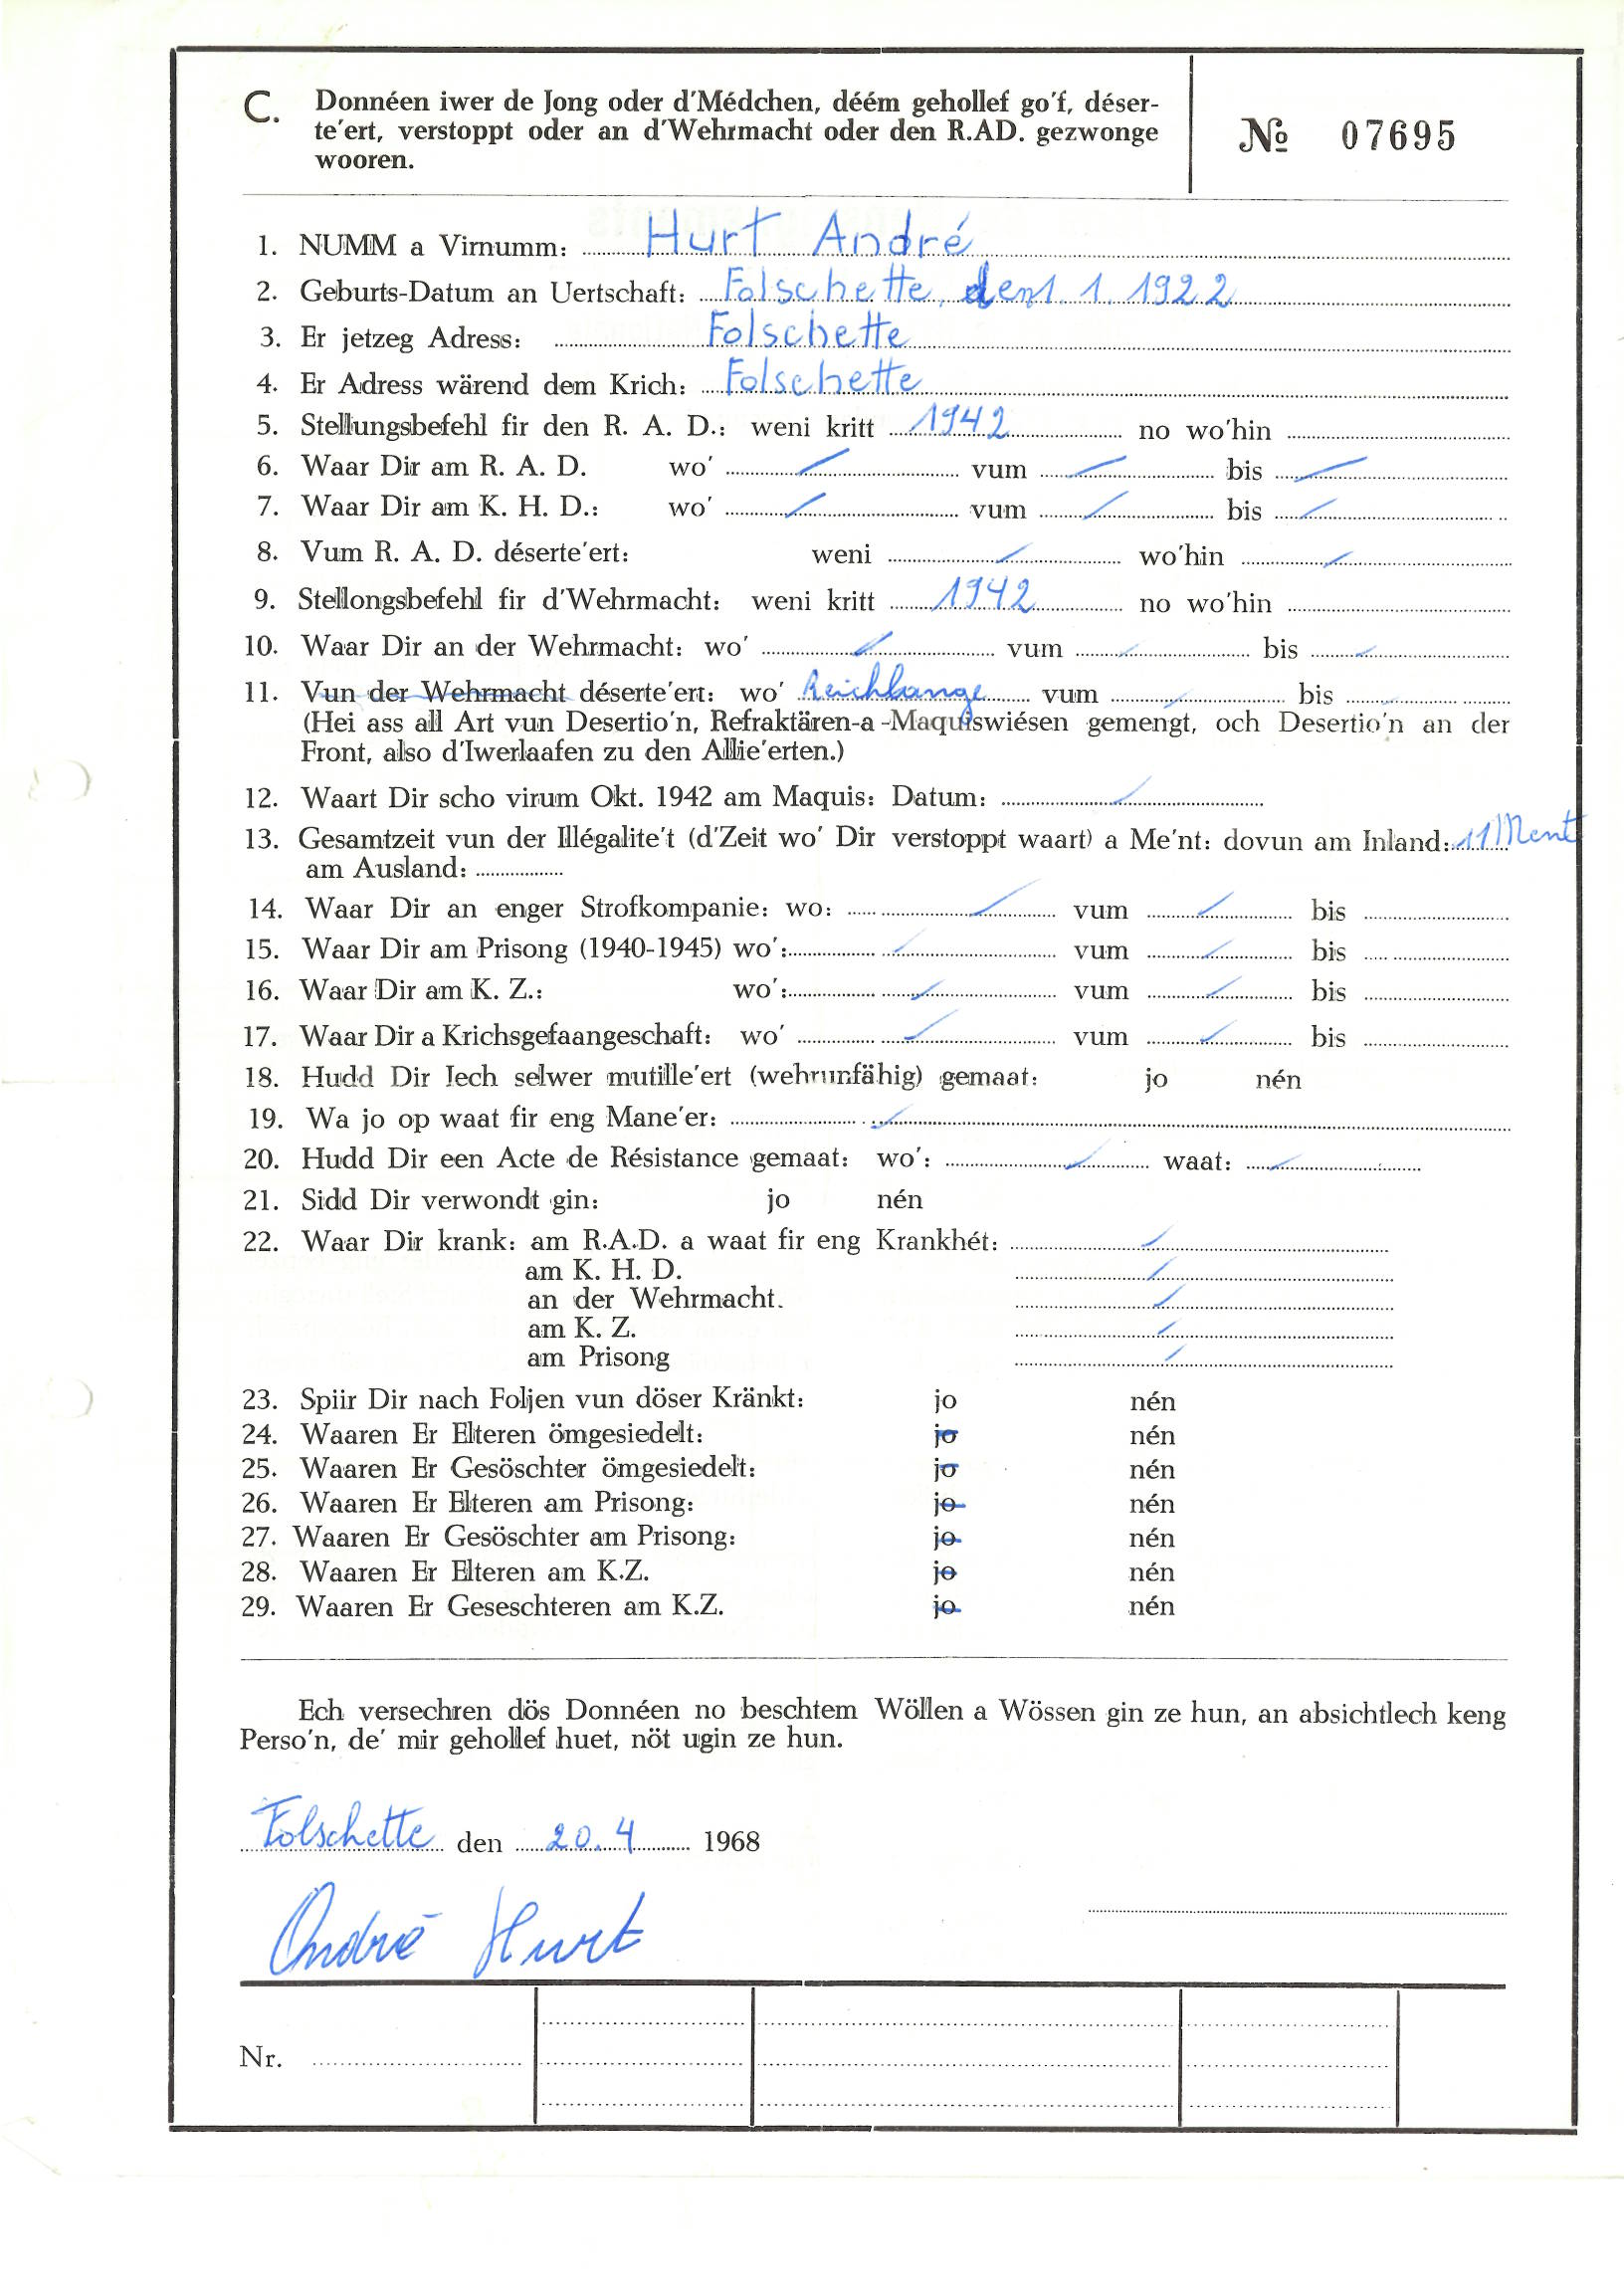 C. Donnéen iwer de Jong oder d'Médchen, déém gehollef go'f, déser-
te'ert, verstoppt oder an d'Wehrmacht oder den R.AD. gezwonge
wooren.
№ 07695
1. NUMM a Virnumm: Hurt André
2. Geburts-Datum an Uertschaft: Folschette, den 1. 1. 1922
3. Er jetzeg Adress: Folschette
4. Er Adress wärend dem Krich: Folschette
5. Stellungsbefehl fir den R. A. D.: weni kritt 1942 no wo'hin
6. Waar Dir am R. A. D. wo' / vum / bis /
7. Waar Dir am K. H. D.: wo' / vum / bis /
8. Vum R. A. D. déserte'ert: weni / wo'hin /
9. Stellongsbefehl fir d'Wehrmacht: weni kritt 1942 no wo'hin
10. Waar Dir an der Wehrmacht: wo' / vum / bis /
11. Vun der Wehrmacht déserte'ert: wo' Reichlange vum / bis /
(Hei ass all Art vun Desertio'n, Refraktären-a-Maquiswiésen gemengt, och Desertio'n an der
Front, also d'Iwerlaafen zu den Allie'erten.)
12. Waart Dir scho virum Okt. 1942 am Maquis: Datum: /
13. Gesamtzeit vun der Illégalite't (d'Zeit wo' Dir verstoppt waart) a Me'nt: dovun am Inland: 11 Ment
am Ausland:
14. Waar Dir an enger Strofkompanie: wo: / vum / bis
15. Waar Dir am Prisong (1940-1945) wo': / vum / bis
16. Waar Dir am K. Z.: wo': / vum / bis
17. Waar Dir a Krichsgefaangeschaft: wo' / vum / bis
18. Hudd Dir Iech selwer mutille'ert (wehrunfähig) gemaat: jo nén
19. Wa jo op waat fir eng Mane'er: /
20. Hudd Dir een Acte de Résistance gemaat: wo': / waat: /
21. Sidd Dir verwondt gin: jo nén
22. Waar Dir krank: am R.A.D. a waat fir eng Krankhét: /
am K. H. D. /
an der Wehrmacht. /
am K. Z. /
am Prisong /
23. Spiir Dir nach Foljen vun döser Kränkt: jo nén
24. Waaren Er Elteren ömgesiedelt: jo nén
25. Waaren Er Gesöschter ömgesiedelt: jo nén
26. Waaren Er Elteren am Prisong: jo nén
27. Waaren Er Gesöschter am Prisong: jo nén
28. Waaren Er Elteren am K.Z. jo nén
29. Waaren Er Geseschteren am K.Z. jo nén
Ech versechren dös Donnéen no beschtem Wöllen a Wössen gin ze hun, an absichtlech keng
Perso'n, de' mir gehollef huet, nöt ugin ze hun.
Folschette den 20.4 1968
André Hurt
Nr.